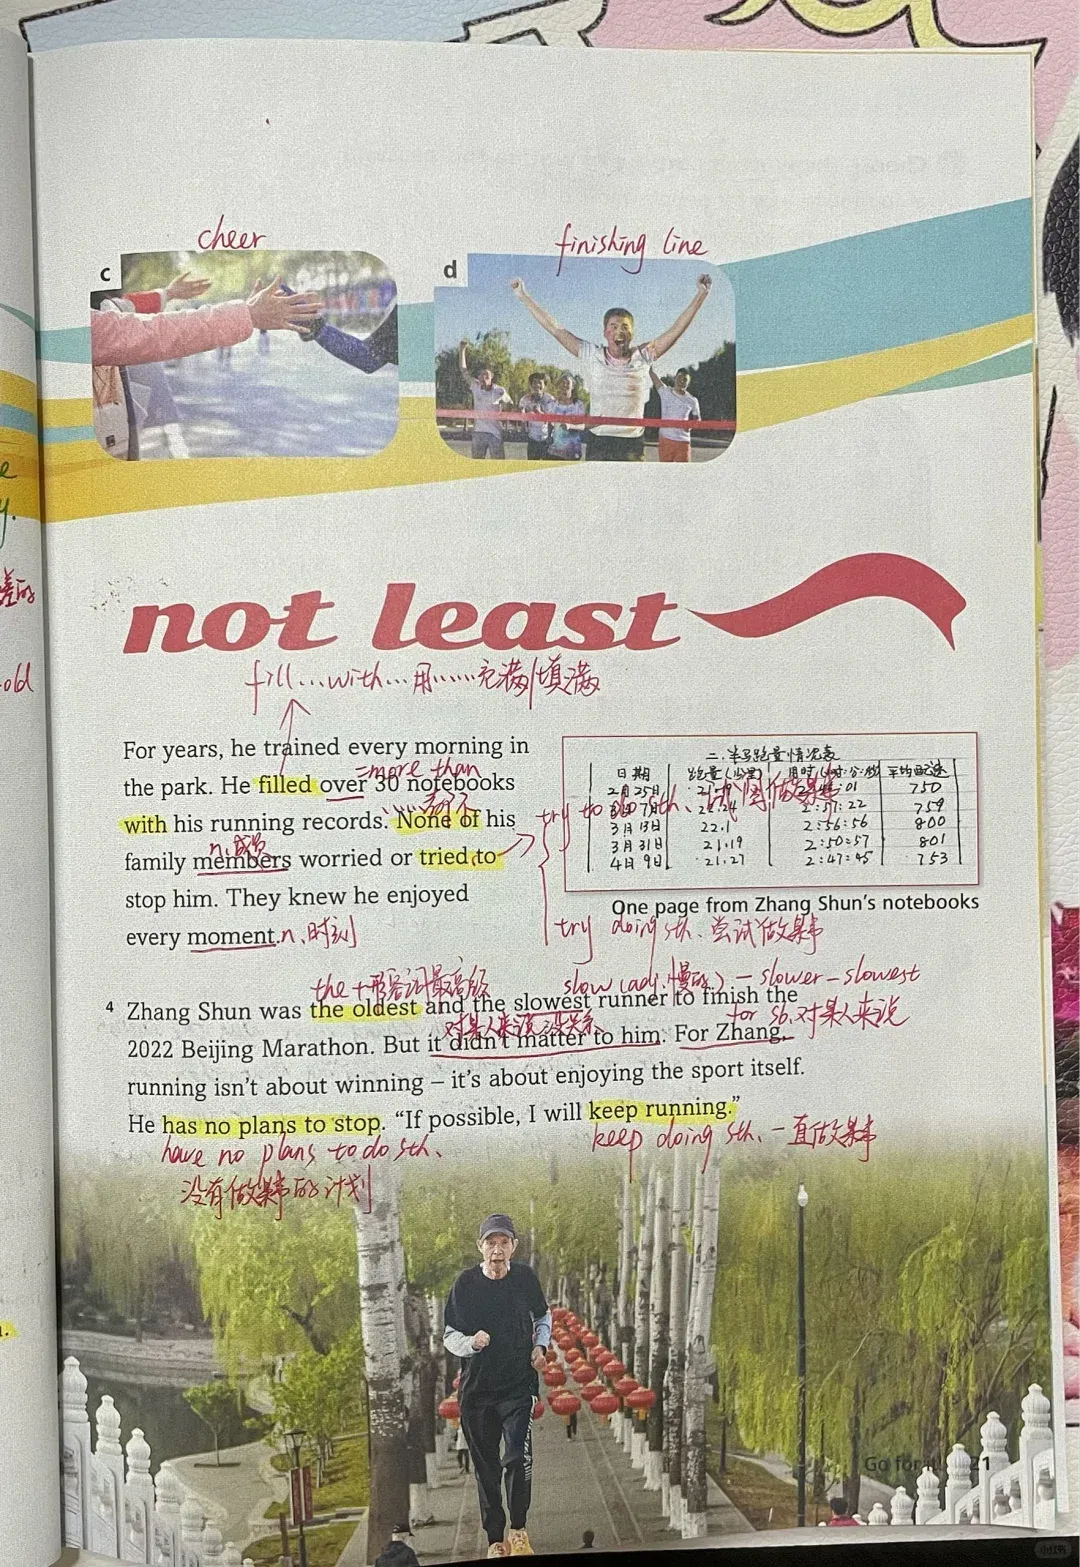 cheer
finishing line
c
d
not least
fill...with...用......充满/填满
For years, he trained every morning in
=more than
the park. He filled over 30 notebooks
with his running records. None of his
n.成员
family members worried or tried to
stop him. They knew he enjoyed
every moment. n.时刻
try to do sth. 试图做某事
try doing sth. 尝试做某事
二.半马跑量情况表
日期 跑量(公里) 用时(小时:分:秒) 平均配速
2月25日 750
3月7日 22.24 2:57:22 759
3月13日 22.1 2:56:56 800
3月31日 21.19 2:50:57 801
4月9日 21.27 2:47:45 753
One page from Zhang Shun's notebooks
the+形容词最高级
slow (adj.慢的) — slower — slowest
4 Zhang Shun was the oldest and the slowest runner to finish the
对某人来说没关系
for sb.对某人来说
2022 Beijing Marathon. But it didn't matter to him. For Zhang,
running isn't about winning – it's about enjoying the sport itself.
He has no plans to stop. “If possible, I will keep running.”
have no plans to do sth.
没有做某事的计划
keep doing sth. 一直做某事
old
y.
Go for it! 21
小红书